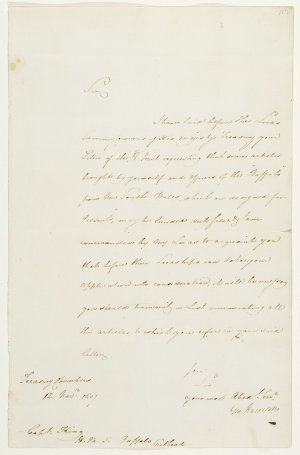 Sir,
I have laid before the Lords
Commissioners of His Majesty's Treasury your
Letter of the 8 Inst requesting that some articles
brought by yourself and officers of the "Buffalo"
from New South Wales which are designed for
Presents, may be landed duty free & I am
commanded by My Lords to acquaint you
that before their Lordships can take your
application into consideration, it will be necessary
you should transmit a List enumerating all
the articles to which you refer in your said
Letter.
I am
Sir
your most Obed. Serv.
Treasury Chambers
12 Nov. 1807
Captn King
H. M. S. Buffalo
Spithead